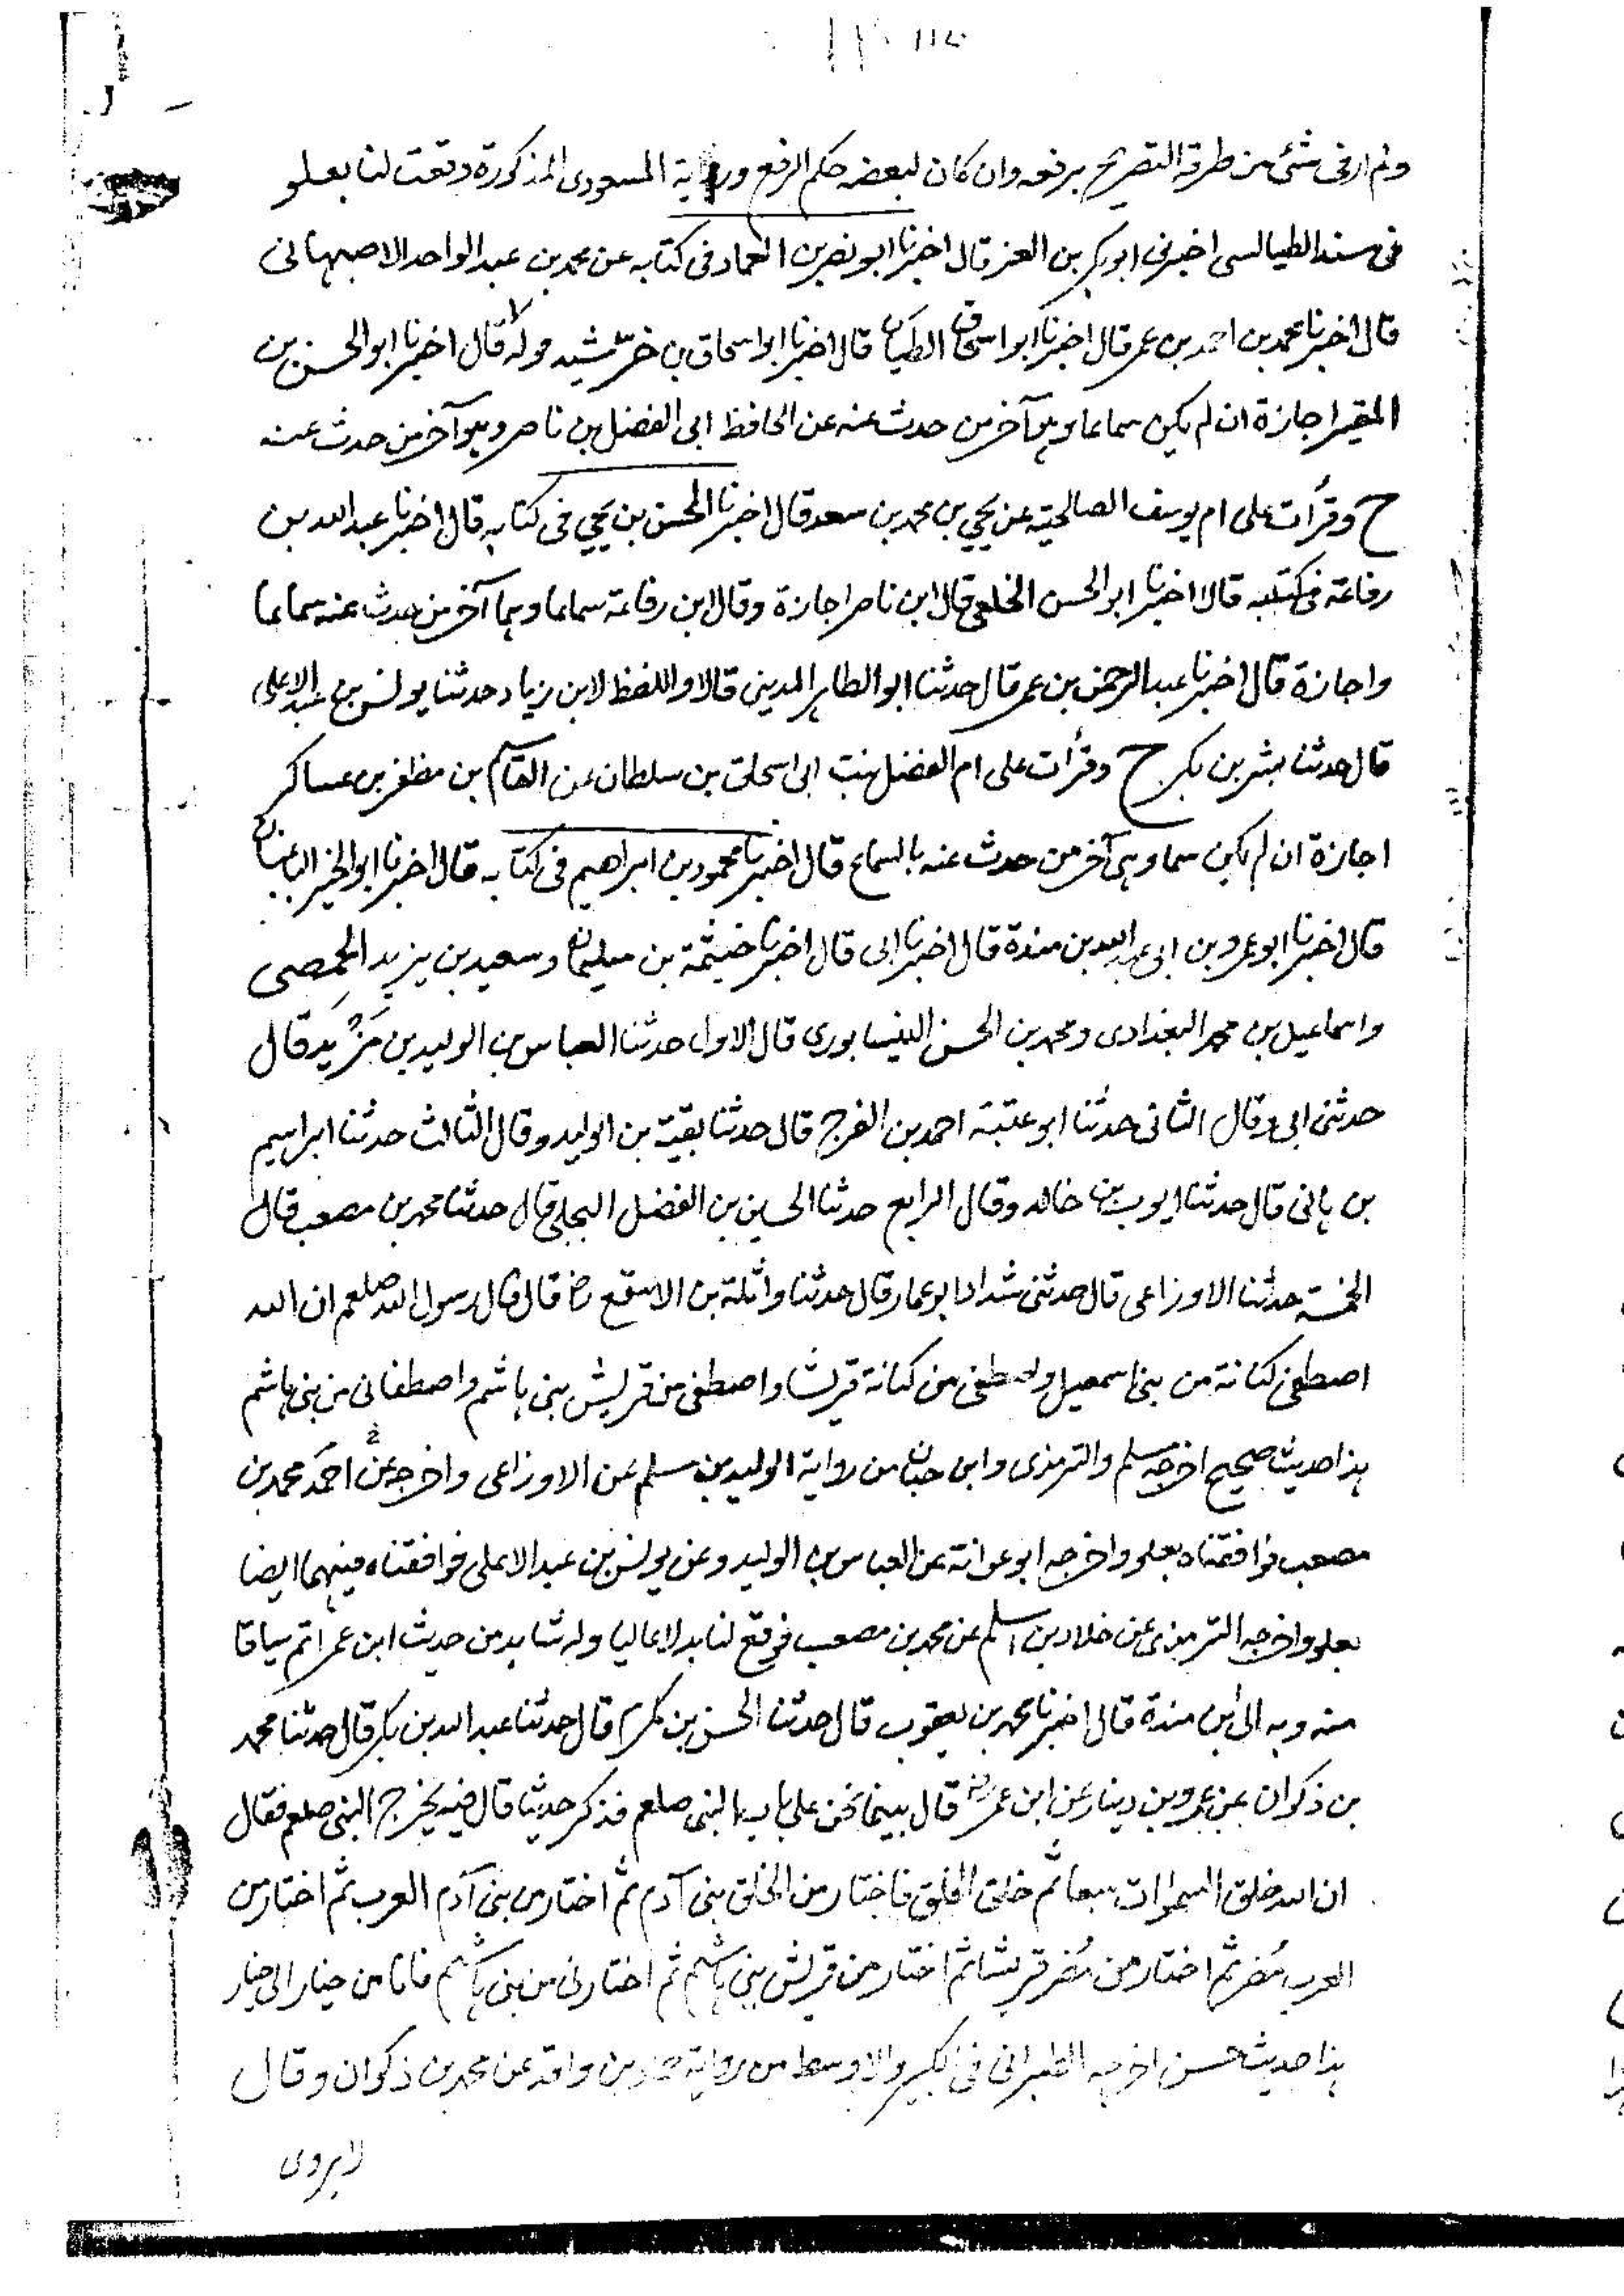 ١١٥
ولم ار فى شئ من طرقه التصريح برفعه وان كان لبعضه حكم الرفع ورواية المسعودى المذكورة وقعت لنا بعلو
فى مسند الطيالسى اخبرنى ابو بكر بن العز قال اخبرنا ابو نصر بن العماد فى كتابه عن محمد بن عبد الواحد الاصبهانى
قال اخبرنا محمد بن احمد بن عمر قال اخبرنا ابو اسحاق الطيان قال اخبرنا ابو اسحاق بن خرشيد قوله قال اخبرنا ابو الحسن بن
المقير اجازة ان لم يكن سماعا وهو آخر من حدث عنه عن الحافظ ابى الفضل بن ناصر وهو آخر من حدث عنه
ح وقرأت على ام يوسف الصالحية عن يحيي بن محمد بن سعد قال اخبرنا الحسن بن يحيي فى كتابه قال اخبرنا عبد الله بن
رفاعة فى كتابه قالا اخبرنا ابو الحسن الخلعى قال ابن ناصر اجازة وقال ابن رفاعة سماعا وهما آخر من حدث عنه سماعا
واجازة قال اخبرنا عبد الرحمن بن عمر قال حدثنا ابو الطاهر المدينى قالا واللفظ لابن زياد حدثنا يونس بن عبد الاعلى
قال حدثنا بشر بن بكر ح وقرأت على ام الفضل بنت ابى اسحاق بن سلطان عن القاسم بن مظفر بن عساكر
اجازة ان لم يكن سماعا وهى آخر من حدث عنه بالسماع قال اخبرنا محمود بن ابراهيم فى كتابه قال اخبرنا ابو الخير الباغبان
قال اخبرنا ابو عمرو بن ابى عبد الله بن مندة قال اخبرنا ابى قال اخبرنا خيثمة بن سليمان وسعيد بن يزيد الحمصى
واسماعيل بن محمد البغدادى ومحمد بن الحسن النيسابورى قال الاول حدثنا العباس بن الوليد بن مَزْيَد قال
حدثنى ابى وقال الثانى حدثنا ابو عتبة احمد بن الفرج قال حدثنا بقية بن الوليد وقال الثالث حدثنا ابراهيم
بن هانى قال حدثنا ايوب بن خالد وقال الرابع حدثنا الحسين بن الفضل البجلى قال حدثنا محمد بن مصعب قال
الخمسة حدثنا الاوزاعى قال حدثنى شداد ابو عمار قال حدثنا واثلة بن الاسقع رض قال قال رسول الله صلعم ان الله
اصطفى كنانة من بنى اسمعيل واصطفى من كنانة قريشا واصطفى من قريش بنى هاشم واصطفانى من بنى هاشم
هذا حديث صحيح اخرجه مسلم والترمذى وابن حبان من رواية الوليد بن مسلم عن الاوزاعى واخرجه احمد عن محمد بن
مصعب فوافقناه بعلو واخرجه ابو عوانة عن العباس بن الوليد وعن يونس بن عبد الاعلى فوافقناه فيهما ايضا
بعلو واخرجه الترمذى عن خلاد بن اسلم عن محمد بن مصعب فوقع لنا بدلا عاليا وله شاهد من حديث ابن عمر اتم سياقا
منه وبه الى ابن مندة قال اخبرنا محمد بن يعقوب قال حدثنا الحسن بن مكرم قال حدثنا عبد الله بن بكر قال حدثنا محمد
بن ذكوان عن عمرو بن دينار عن ابن عمر رض قال بينما نحن على باب النبى صلعم فذكر حديثا قال فيه فخرج النبى صلعم فقال
ان الله خلق السموات سبعا ثم خلق الخلق فاختار من الخلق بنى آدم ثم اختار من بنى آدم العرب ثم اختار من
العرب مُضر ثم اختار من مُضر قريشا ثم اختار من قريش بنى هاشم ثم اختارنى من بنى هاشم فانا من خيار الى خيار
هذا حديث حسن اخرجه الطبرانى فى الكبير والاوسط من رواية حماد بن واقد عن محمد بن ذكوان وقال
لا يروى